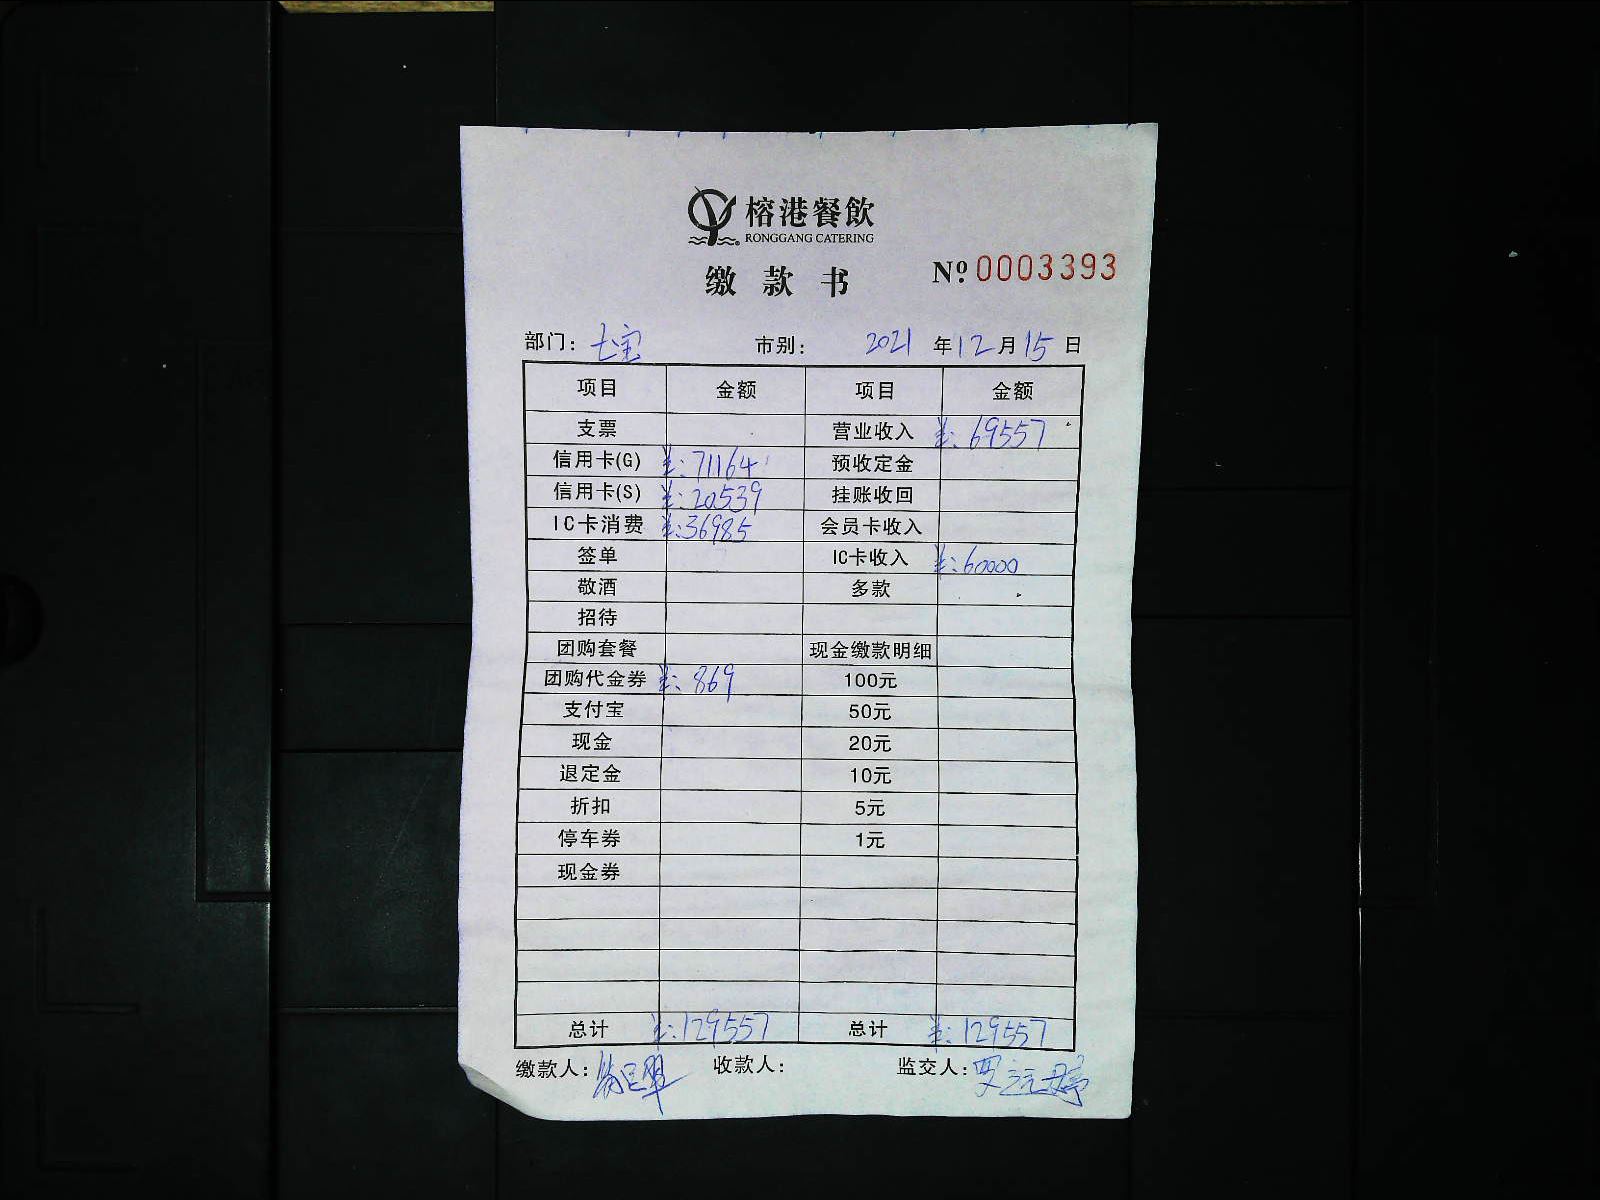 榕港餐飲
RONGGANG CATERING
缴款书
Nº 0003393
部门：七宝 市别： 2021 年 12 月 15 日
项目 金额 项目 金额
支票 营业收入 ¥：69557
信用卡(G) ¥：71164 预收定金
信用卡(S) ¥：20539 挂账收回
IC卡消费 ¥：36985 会员卡收入
签单 IC卡收入 ¥：60000
敬酒 多款
招待
团购套餐 现金缴款明细
团购代金券 ¥：869 100元
支付宝 50元
现金 20元
退定金 10元
折扣 5元
停车券 1元
现金券
总计 ¥：129557 总计 ¥：129557
缴款人： 收款人： 监交人：